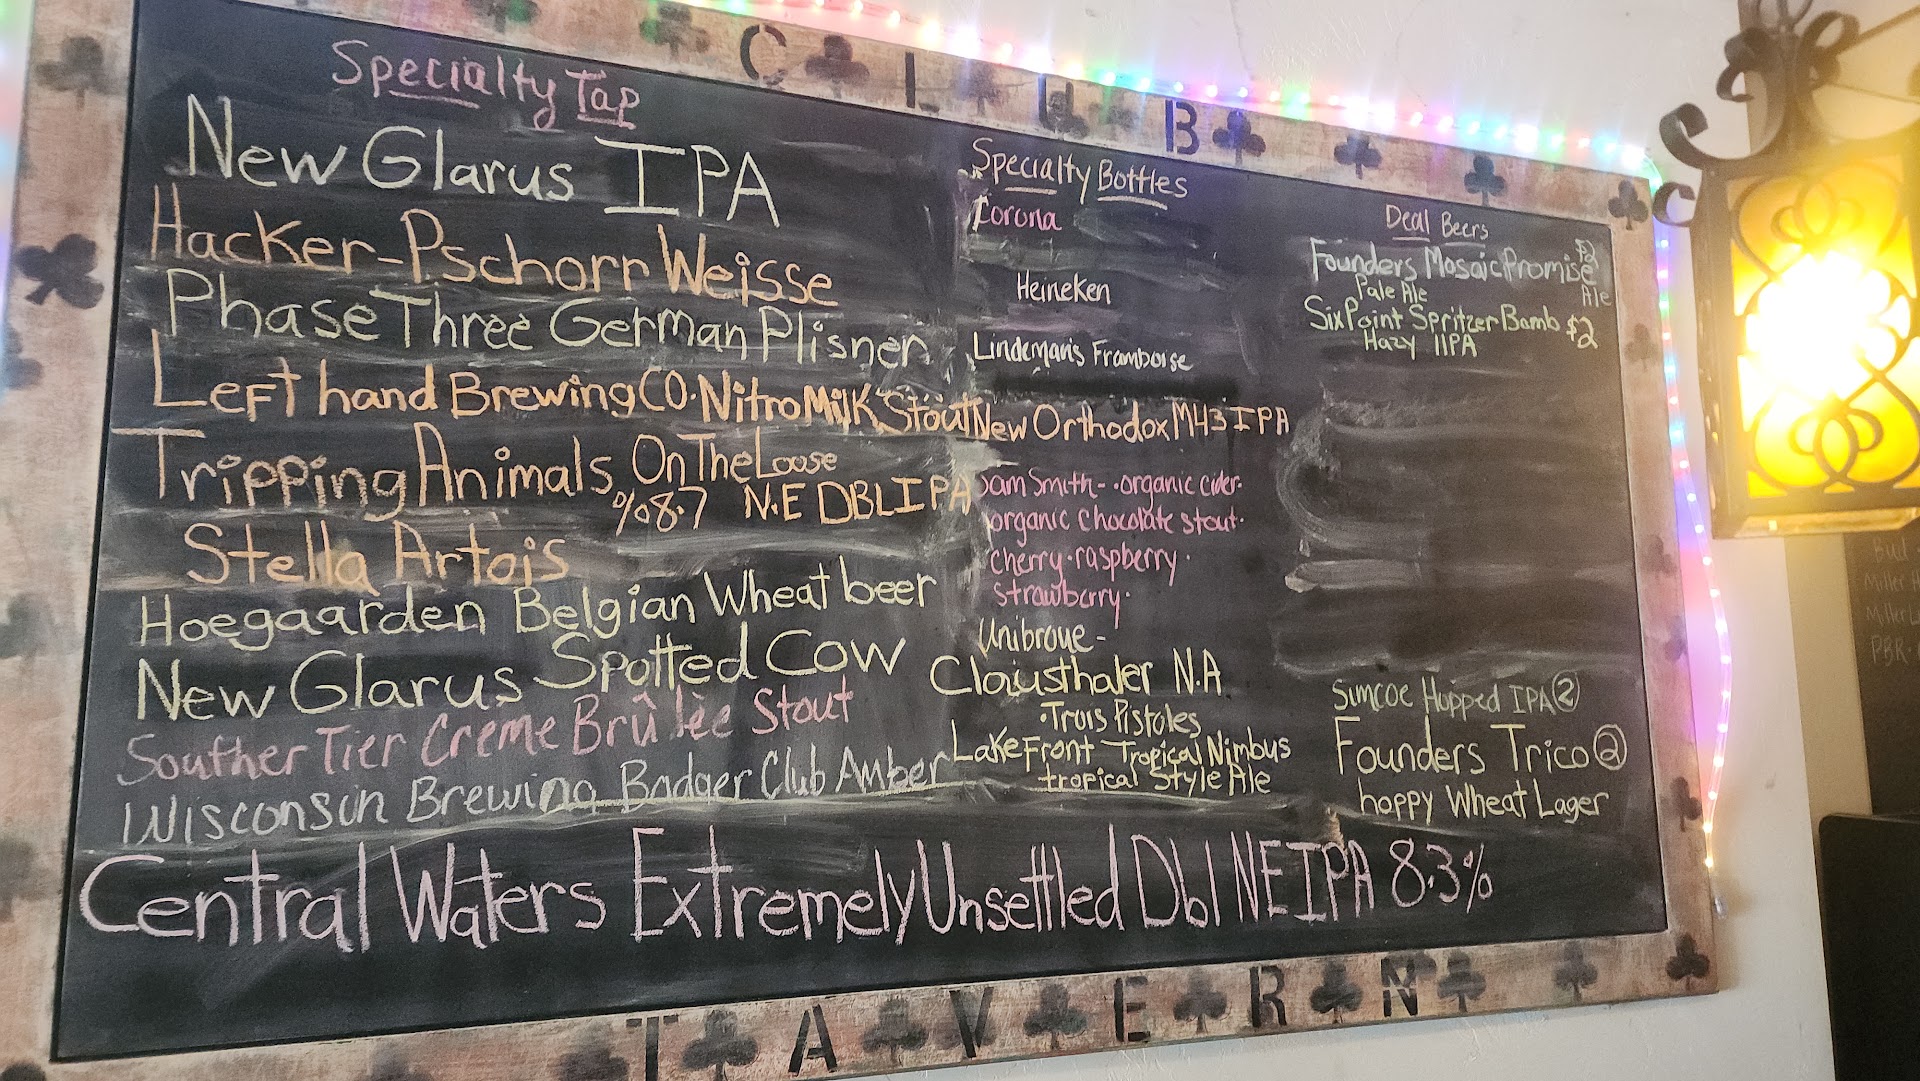 CLUB
Specialty Tap
New Glarus IPA
Hacker-Pschorr Weisse
Phase Three German Plisner
Left hand Brewing CO. Nitro Milk Stout
Tripping Animals On The Loose
%8.7 N.E DBL IPA
Stella Artois
Hoegaarden Belgian Wheat beer
New Glarus Spotted Cow
Souther Tier Creme Brûlèe Stout
Wisconsin Brewing Badger Club Amber
Central Waters Extremely Unsettled Dbl NE IPA 8.3%
Specialty Bottles
Corona
Heineken
Lindeman's Framboise
New Orthodox M43 IPA
Sam Smith- ·organic cider·
organic chocolate stout·
cherry·raspberry·
strawberry·
Unibroue-
Clausthaler N.A
·Trois Pistoles
LakeFront Tropical Nimbus
tropical Style Ale
Deal Beers
Founders Mosaic Promise $2
Pale Ale Ale
SixPoint Spritzer Bamb $2
Hazy IIPA
Simcoe Hopped IPA 2
Founders Trico 2
hoppy Wheat Lager
TAVERN
Bud
Miller H
Miller L
PBR·